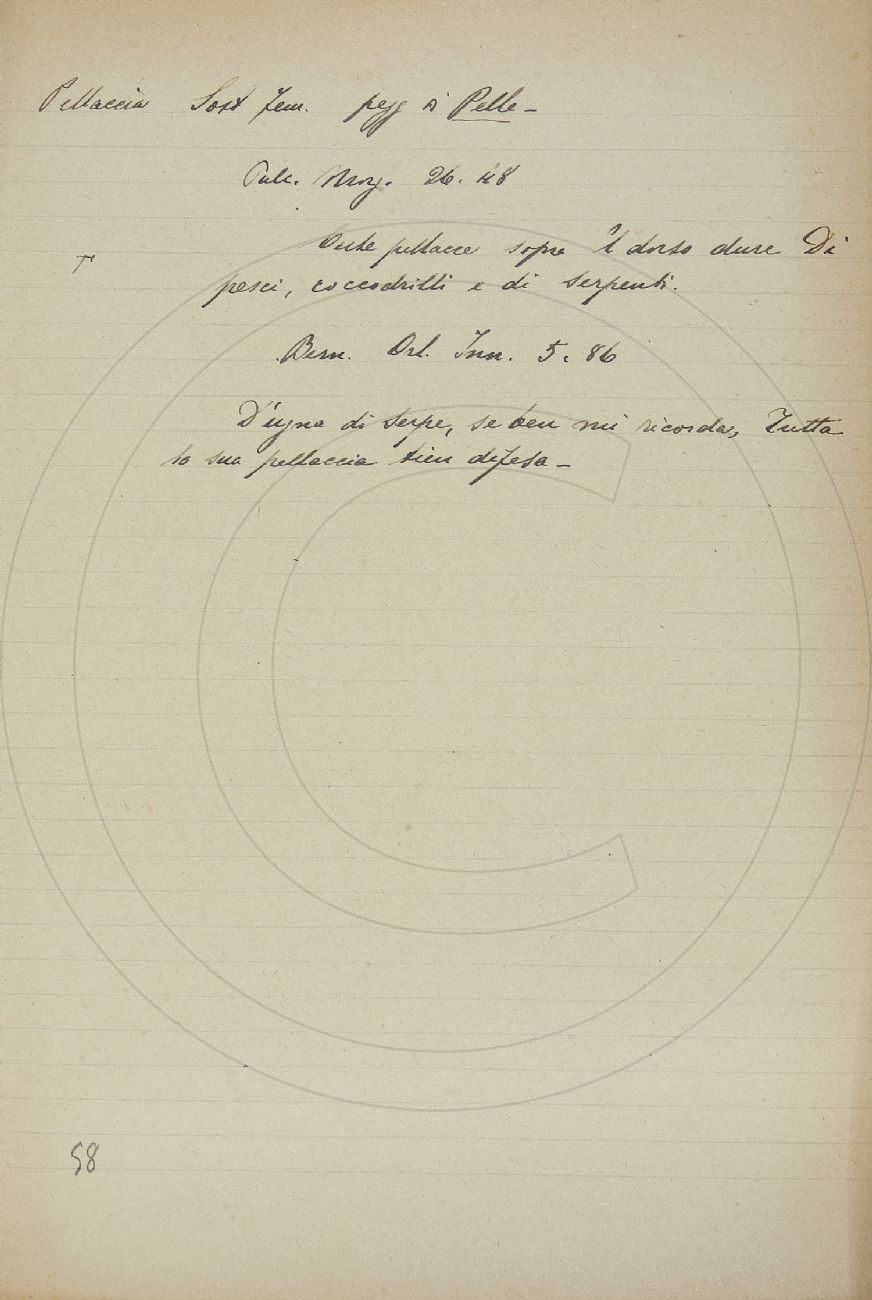 Pellaccia Sost fem. pegg di Pelle -
Pulc. Morg. 26. 48
T
Certe pellacce sopra 'l dorso dure Di
pesci, coccodrilli e di serpenti.
Bern. Orl. Inn. 5. 86
D'ugna di serpe, se ben mi ricorda, Tutta
la sua pellaccia tien difesa -
58